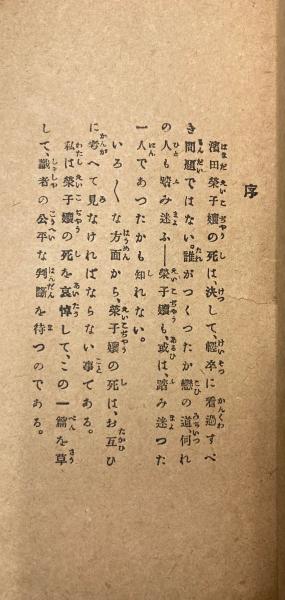 序
濱田榮子孃の死は決して、輕卒に看過す、べ
き問題ではない。誰がつくつたか戀の道、何れ
の人も踏み迷ふ――榮子孃も、或は、踏み迷つた
一人であつたかも知れない。
いろ〱な方面から、榮子孃の死は、お互ひ
に考へて見なければならない事である。
私は榮子孃の死を哀悼して、この一篇を草
して、識者の公平な判斷を待つのである。